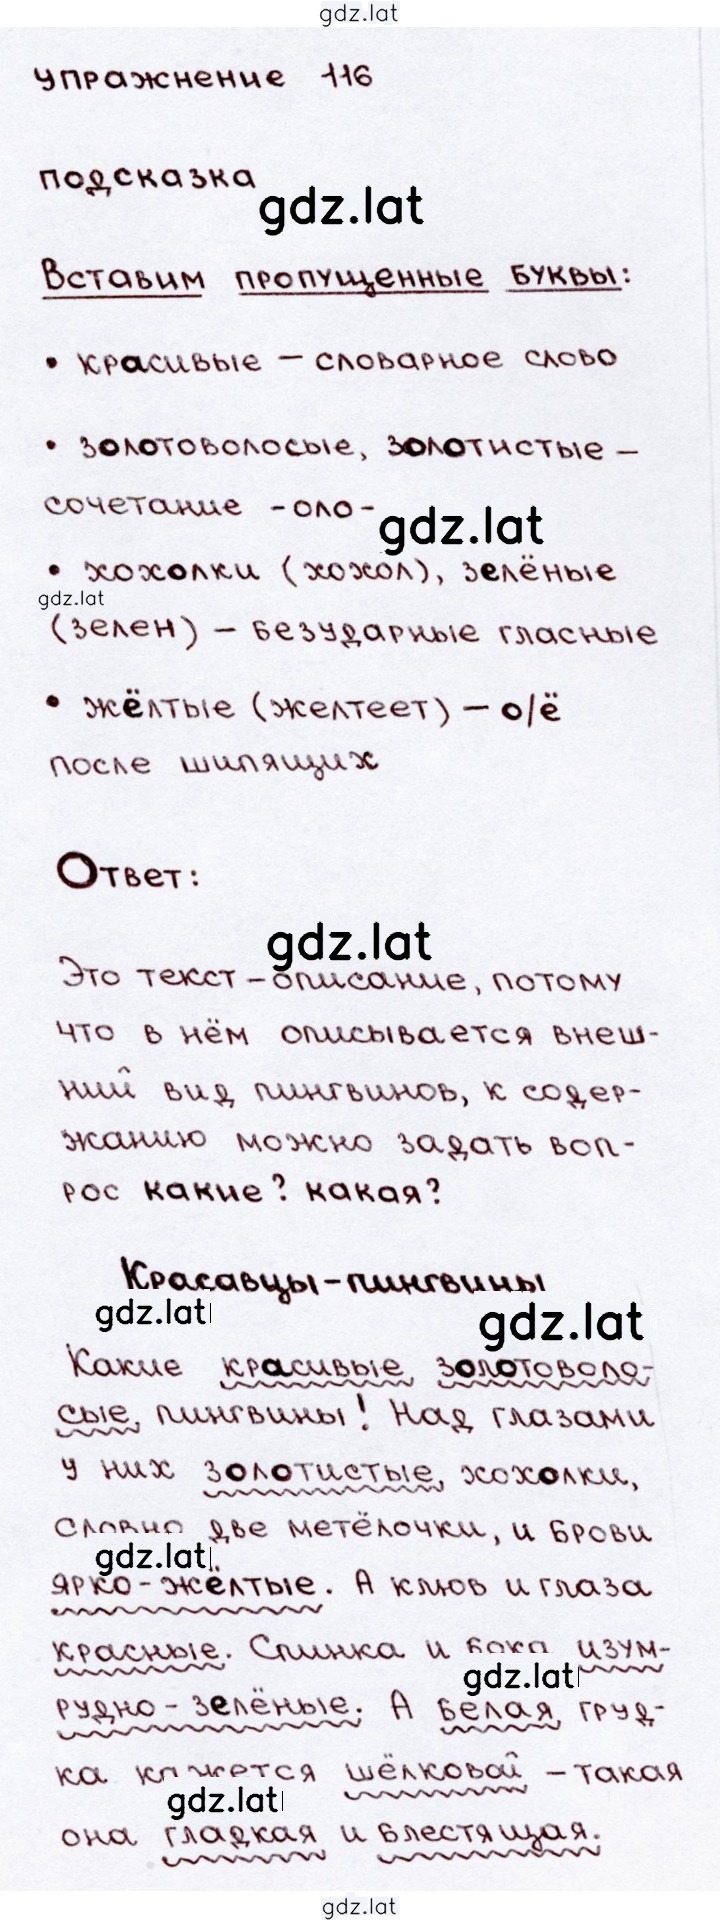 gdz.lat
упражнение 116
подсказка
gdz.lat
Вставим пропущенные буквы:
• красивые – словарное слово
• золотоволосые, золотистые –
сочетание -оло-
gdz.lat
• хохолки (хохол), зелёные
gdz.lat
(зелен) – безударные гласные
• жёлтые (желтеет) – о/ё
после шипящих
Ответ:
gdz.lat
Это текст-описание, потому
что в нём описывается внеш-
ний вид пингвинов, к содер-
жанию можно задать воп-
рос какие? какая?
Красавцы-пингвины
gdz.lat
gdz.lat
Какие красивые, золотоволо-
сые, пингвины! Над глазами
у них золотистые, хохолки,
словно две метёлочки, и брови
gdz.lat
ярко-жёлтые. А клюв и глаза
красные. Спинка и бока изум-
gdz.lat
рудно-зелёные. А белая, груд-
ка кажется шёлковой – такая
gdz.lat
она гладкая и блестящая.
gdz.lat